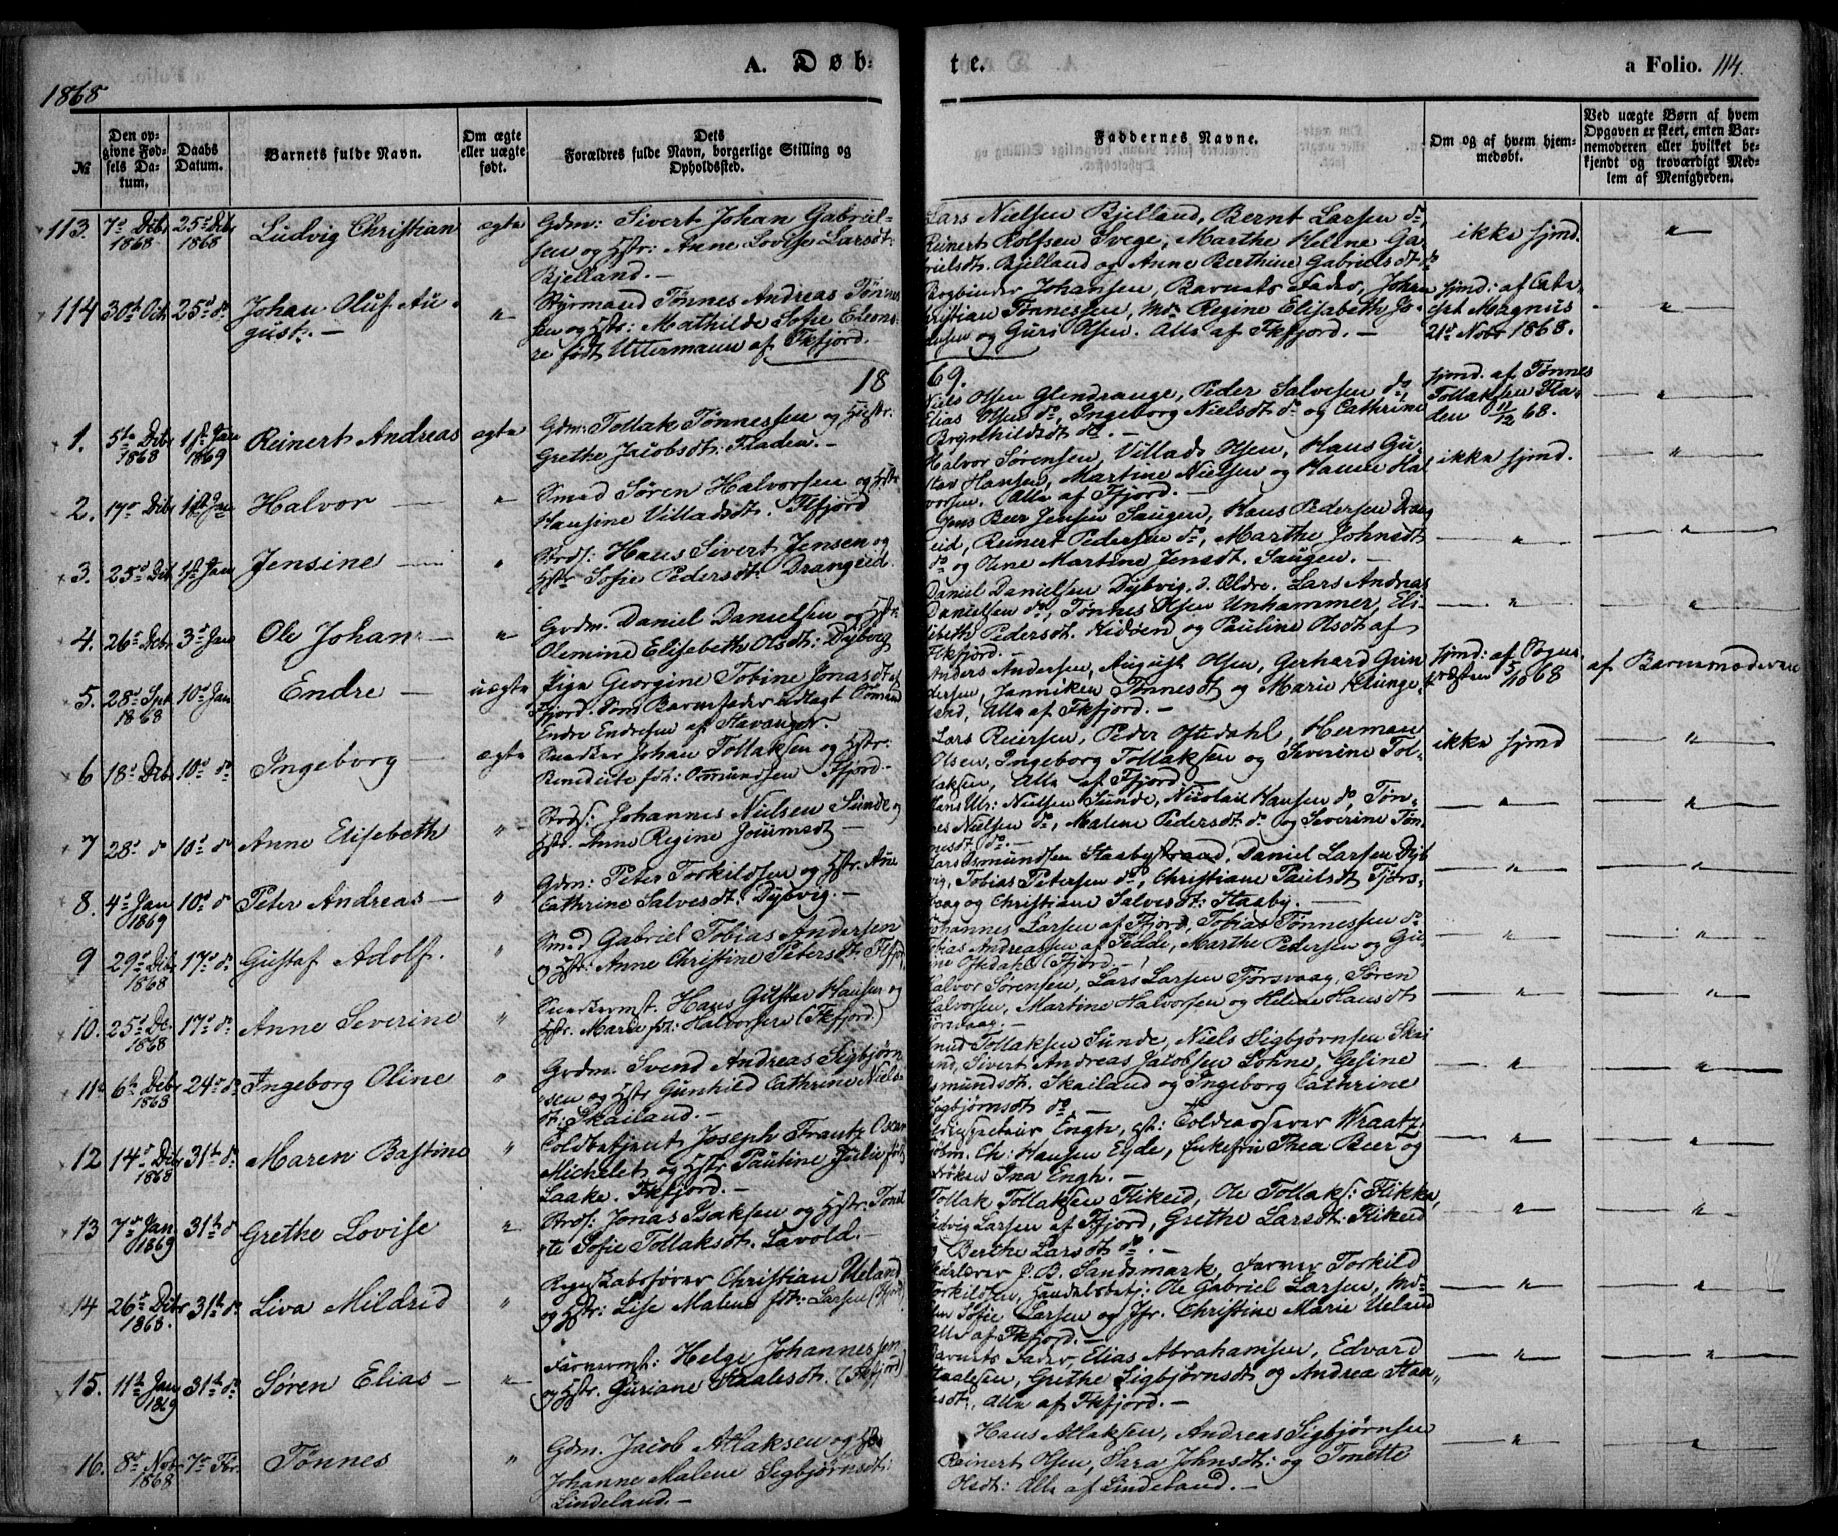 1868
A. Døb-
te.
a Folio. 114.
№
Den op-
givne Fød-
sels Da-
tum.
Daabs
Datum.
Barnets fulde Navn.
Om ægte
eller uægte
født.
Dets
Forældres fulde Navn, borgerlige Stilling og
Opholdssted.
Faddernes Navne.
Om og af hvem hjem-
medøbt.
Ved uægte Børn af hvem
Opgaven er skeet, enten Bar-
nemoderen eller hvilket be-
kjendt og troværdigt Med-
lem af Menigheden.
113. 7de Dcbr 1868 25de Dcbr 1868 Ludvig Christian ægte
Gdm: Sivert Johan Gabriel-
sen og Hstr: Anne Lovise Larsdt:
Bjelland.-
Lars Nielsen Bjelland, Bernt Larsen do,
Reinert Rolfsen Svege, Marthe Helene Ga-
brielsdt. Bjelland og Anne Berthine Gabrielsdt do
ikke hjmd. "
114 30te Oct. 25de do Johan Oluf Au-
gust.- "
Styrmand Tønnes Andreas Tønnes
sen og Hstr: Mathilde Sofie Eleono-
re født Uttermann af Fkfjord.
Bogbinder Johansen, Barnets Fader, Johan
Kristian Tønnessen, Md. Regine Elisabeth Jo-
hnsen og Guri Olsen. Alle af Fkfjord.-
hjmd: af Cate-
chet Magnus
21de Novr 1868. "
1869.
1. 5te Dcbr 1868 1ste Jan 1869 Reinert Andreas ægte
Gdm: Tollak Tønnessen og Hstr:
Grethe Jacobsdt: Fladen.-
Niels Olsen Glendrange, Peder Salvesen do,
Elias Olsen do, Ingeborg Nielsdt do og Cathrine
Brynhildsdt do.-
hjmd. af Tønnes
Tollaksen Fla-
den 11/12 68. "
2. 17de Dcbr 1ste Jan Halvor "
Smed Søren Halvorsen og Hstr
Hansine Villadsdt. Fkfjord
Halvor Sørensen, Villads Olsen, Hans Gu-
stav Hansen, Martine Nielsen og Hanne Hal-
vorsen. Alle af Ffjord.-
ikke hjmd. "
3. 25de Dcb 1ste Jan Jensine "
Strds: Hans Sivert Jensen og
Hstr Sofie Pedersdt: Drangeid
Jens Beer Jensen Saugen, Hans Pedersen Drang
eid, Reinert Pedersen do, Marthe Johnsdt
do og Oline Martine Jensdt. Saugen.-
" "
4. 26de Dcbr 3die Jan Ole Johan "
Grdm. Daniel Danielsen og Hstr
Olemine Elisabeth Olsdt: Dybvig
Daniel Danielsen Dybvig d. Ældre. Lars Andreas
Danielsen do, Tønnes Olsen Unhammer, Eli-
sebeth Pedersdt. Hidøen og Pauline Olsdt af
Fkfjord.-
" "
5. 28de Spt 1868 10de Jan Endre uægte
Pige Georgine Tobine Jonasdt af
Fjord. Som Barnefader udlagt Tømmer
Endre Endresen af Stavanger.
Anders Andersen, August Olsen, Gerhard Grin
dersen, Janniken Tønnesdt og Marie Klunge-
land, Alle af Fkfjord.-
hjmd: af Sogne-
præsten 5/10 68 af Barnemoderen
6 18de Dcb 10de do Ingeborg ægte
Snedker Johan Tollaksen og Hstr:
Benedicte fød: Ommundsen Ffjord.
Lars Reiersen, Peder Oftedahl, Herman
Olsen, Ingeborg Tollaksen og Severine Tol-
laksen, Alle af Ffjord.-
ikke hjmd "
7 28de do 10de do Anne Elisebeth "
Strds: Johannes Nielsen Sunde og
Hstr. Anne Regine Joumsdt -
Hans Ur: Nielsen Sunde, Nicolai Hansen do, Tøn-
nes Nielsen do, Malene Pedersdt: do og Severine Tøn-
nesdt do.-
" "
8. 4de Jan 1869 10de do Peter Andreas "
Gdm: Peter Torkildsen og Hstr. Ane
Cathrine Salvesdt. Dybvig.-
Lars Osmundsen Staabystrand, Daniel Larsen Dyb
vig, Tobias Petersen do, Christiane Paulsdt Tjørs-
vaag og Christiane Salvesdt: Staaby.-
" "
9 29de Dcb 1868 17de do Gustaf Adolf. "
Smed Gabriel Tobias Andersen
og Hstr: Anne Christine Petersdt Fkfjord
Johannes Larsen af Ffjord, Tobias Tønnessen do
Tobias Andreassen af Fedde, Marthe Pedersen og Gu-
rine Oftedahl (Ffjord.-
" "
10. 25de Dc. 1868 17de do Anne Severine "
Snedkermst. Hans Gustav Hansen og
Hstr. Marie fød: Halvorsen (Fkfjord)
Halvor Sørensen, Lars Larsen Tjorsvaag, Søren
Halvorsen, Martine Halvorsen og Helene Hansdt
Tjorsvaag.-
" "
11. 6te Dcbr 1868 24de do Ingeborg Oline "
Grdm. Svend Andreas Sigbjørn
sen og Hstr Gunhild Cathrine Niels-
dt: Skailand.-
Knud Tollaksen Sunde, Niels Sigbjørnsen Skai-
land, Sivert Andreas Jacobsen Løhne, Geline
Osmundsdt. Skailand og Ingeborg Cathrine
Sigbjørnsdt do.-
" "
12 14de Dcbr 1868 31te do Maren Bastine "
Toldbetjent Joseph Frantz Oscar
Michelet og Hstr Pauline Julie født
Laake. Fkfjord.-
Engh, cst: Toldcasserer Wraatz
Ch: Hansen Eyde, Enkefru Thea Beer og
Frøken Ina Engh.-
" "
13 7de Jan 1869 31te do Grethe Lovise "
Strds: Jonas Isaksen og Hstr. Tonet
te Sofie Tollaksdt. Løvold.-
Tollak Tollaksen Flikeid, Ole Tollaks: Flikke,
Ludvig Larsen af Ffjord, Grethe Larsdt: Flikeid
og Berthe Larsdt do.-
" "
14 26de Dcbr 1868. 31te do Liva Mildrid "
Regnskabsfører Christian Ueland
og Hstr: Lise Malene fdt: Larsen (Fjord)
Skolelærer P. B. Sandsmark, Farver Torkild
Torkildsen, Handelsbetj: Ole Gabriel Larsen, Ma-
Sofie Larsen og Jfr. Christine Marie Ueland
Alle af Fkfjord.-
" "
15. 11te Jan 1869 31te do Søren Elias "
Farvermst: Helge Johannessen
og Hstr. Guriane Staalesdt. (Fkfjord)
Barnets Fader, Elias Abrahamsen, Edvard
Staalesen, Grethe Sigbjørnsdt og Andrea Staa-
lesdt, Alle af Fkfjord.-
" "
16. 8de Nov 1868 7de Fbr. Tønnes "
Gdm. Jacob Atlaksen og Hstr
Johanne Malene Sigbjørnsdt:
Lindeland.-
Hans Atlaksen, Andreas Sigbjørnsen
Reinert Olsen, Sara Johnsdt: og Tonette
Olsdt: Alle af Lindeland.-
" "